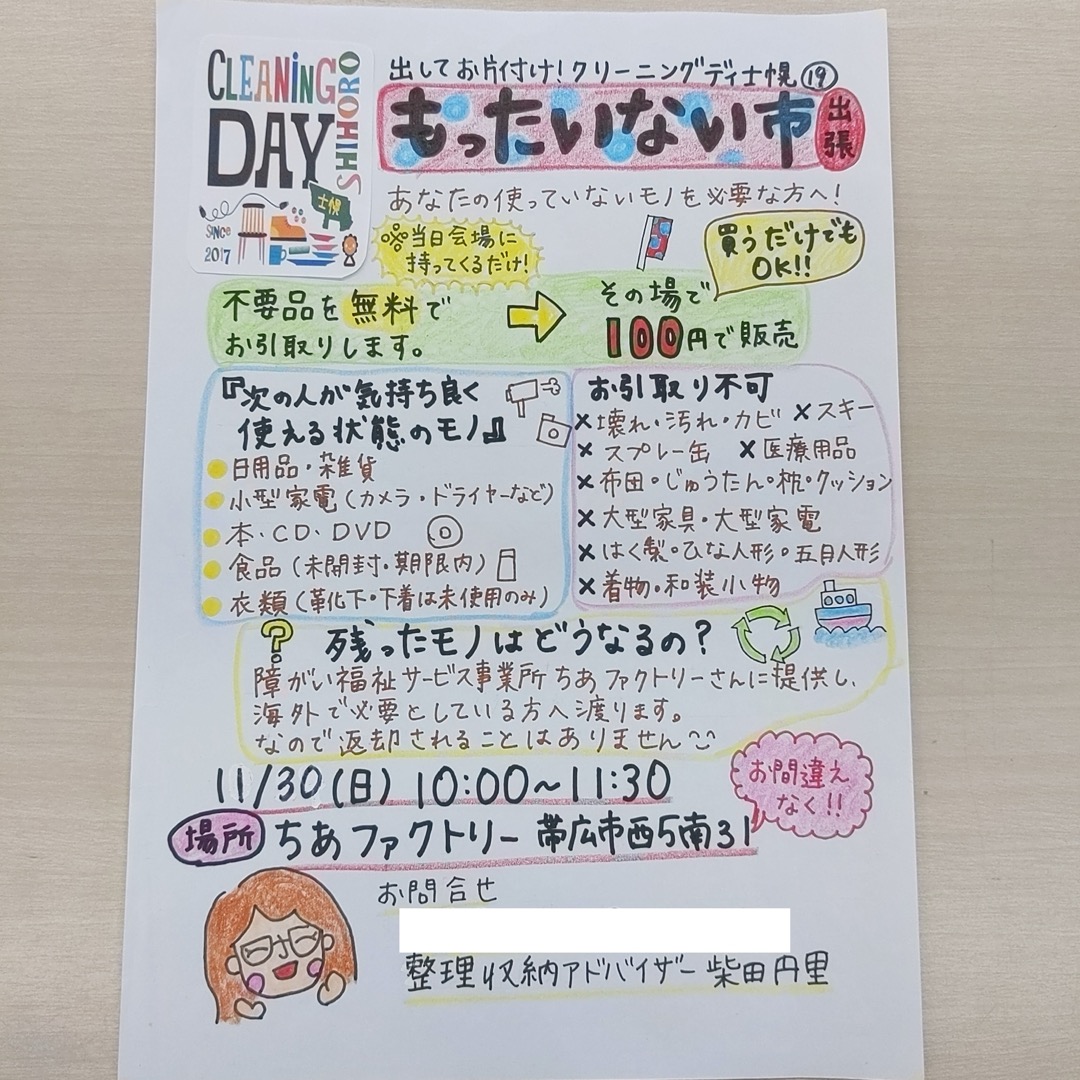 CLEANING
DAY
SHIHORO
士幌
SINCE
2017
出してお片付け!クリーニングディ士幌⑲
もったいない市
出張
あなたの使っていないモノを必要な方へ!
※当日会場に
持ってくるだけ!
買うだけでも
OK!!
不要品を無料で
お引取りします。
その場で
100円で販売
『次の人が気持ち良く
使える状態のモノ』
日用品・雑貨
小型家電(カメラ・ドライヤーなど)
本・CD・DVD
食品(未開封・期限内)
衣類(靴下・下着は未使用のみ)
お引取り不可
×壊れ・汚れ・カビ ×スキー
×スプレー缶 ×医療用品
×布団・じゅうたん・枕・クッション
×大型家具・大型家電
×はく製・ひな人形・五月人形
×着物・和装小物
? 残ったモノはどうなるの?
障がい福祉サービス事業所ちあファクトリーさんに提供し、
海外で必要としている方へ渡ります。
なので返却されることはありません
11/30(日) 10:00~11:30
お間違え
なく!!
場所 ちあファクトリー 帯広市西5南31
お問合せ
整理収納アドバイザー柴田円里